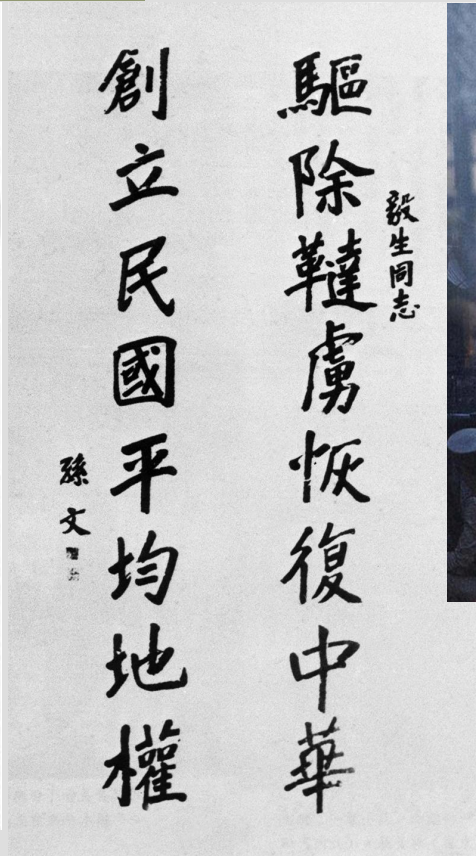 毅生同志
驅除韃虜恢復中華
創立民國平均地權
孫文